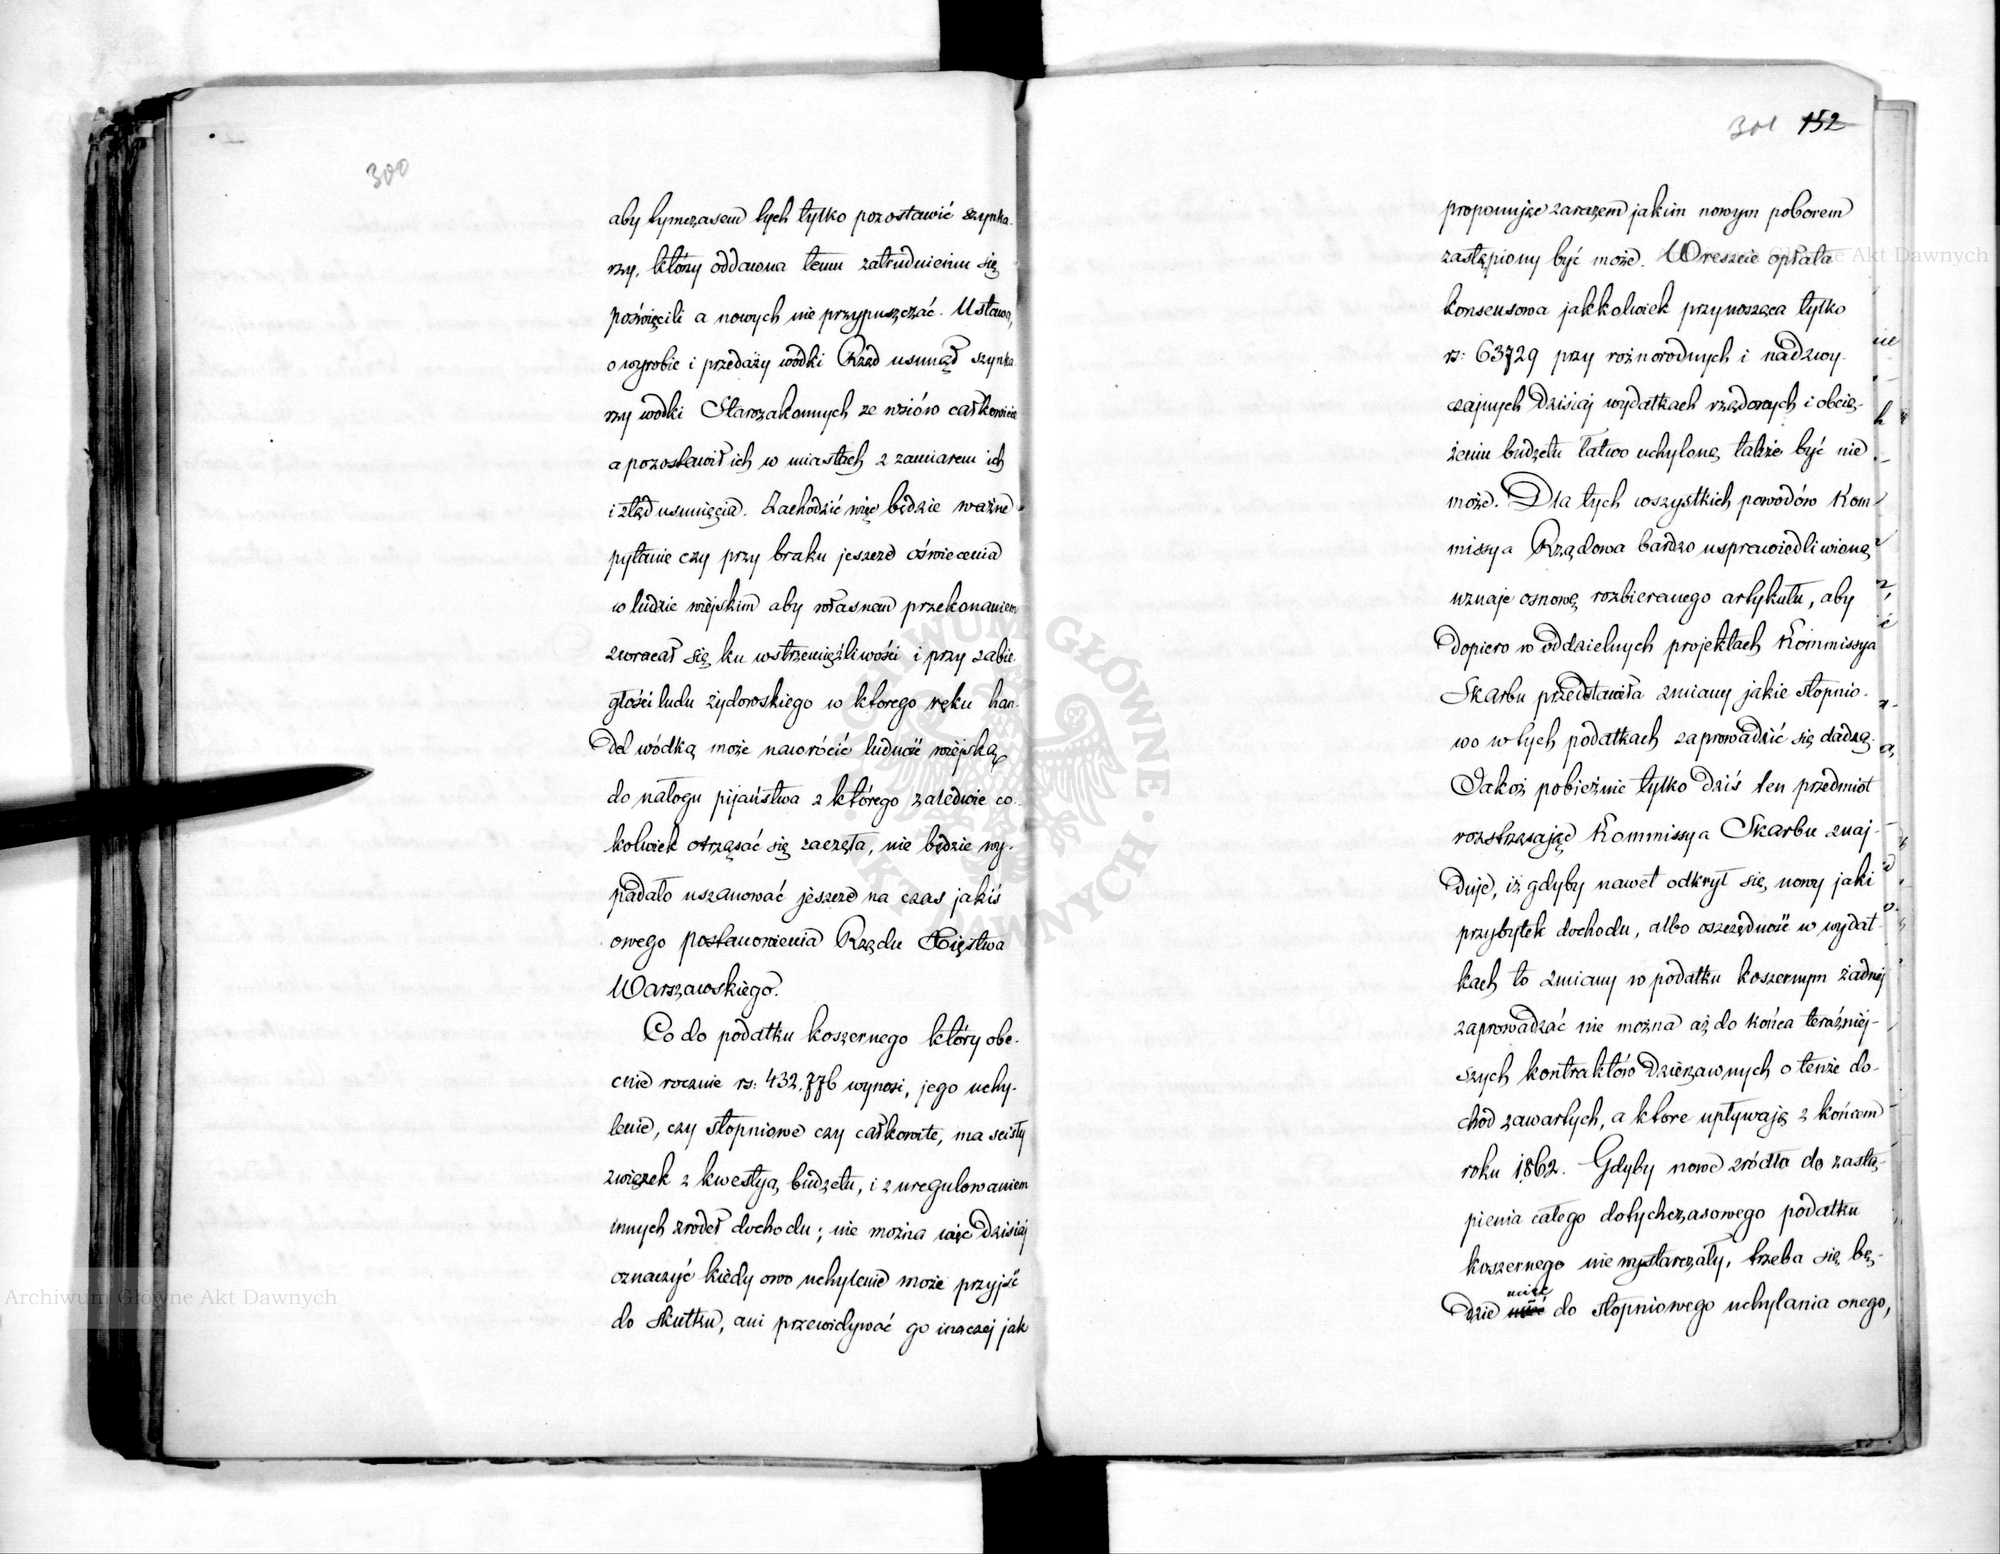 300
aby tymczasem tych tylko pozostawić szynka-
rzy, którzy oddawna temu zatrudnieniu się
poświęcili a nowych nie przypuszczać. Ustawą
o wyrobie i przedaży wódki Rząd usunął szynka
rzy wódki Starozakonnych ze wsiów całkowicie
a pozostawił ich w miastach z zamiarem ich
i ztąd usunięcia. Zachodzić więc będzie ważne
pytanie czy przy braku jeszcze oświecenia
w ludzie wiejskim aby własnem przekonaniem
zwracał się ku wstrzemięźliwości i przy zabie-
głości ludu żydowskiego w którego ręku han-
del wódką może nawrócić ludność wiejską
do nałogu pijaństwa z którego zaledwie co-
kolwiek otrząsać się zaczęła, nie będzie wy-
padało uszanować jeszcze na czas jakiś
owego postanowienia Rządu Xięstwa
Warszawskiego.
Co do podatku koszernego który obe-
cnie rocznie rs: 432,776 wynosi, jego uchy-
lenie, czy stopniowe czy całkowite, ma scisły
związek z kwestyą budżetu, i z uregulowaniem
innych zrodeł dochodu; nie można więc dzisiaj
oznaczyć kiedy owo uchylenie może przyjść
do skutku, ani przewidywać go inaczej jak
301 152
proponując zarazem jakim nowym poborem
zastąpiony być może. Wreszcie opłata
konsensowa jakkolwiek przynosząca tylko
rs: 63729 przy rożnorodnych i nadzwy-
czajnych dzisiaj wydatkach rządowych i obcią-
żeniu budżetu łatwo uchyloną także być nie
może. Dla tych wszystkich powodów Kom-
missya Rządowa bardzo usprawiedliwioną
uznaje osnowę rozbieranego artykułu, aby
dopiero w oddzielnych projektach Kommissya
Skarbu przedstawiła zmiany jakie stopnio-
wo w tych podatkach zaprowadzić się dadzą.
Jakoż pobieżnie tylko dziś ten przedmiot
rozstrząsając Kommissya Skarbu znaj-
duje, iż gdyby nawet odkrył się nowy jaki
przybytek dochodu, albo oszczędność w wydat-
kach to zmiany w podatku koszernym żadnej
zaprowadzać nie można aż do końca teraźniej-
szych kontraktów dzierżawnych o tenże do-
chód zawartych, a które upływają z końcem
roku 1862. Gdyby nowe zródła do zastą-
pienia całego dotychczasowego podatku
koszernego nie wystarczały, trzeba się bę-
dzie mieć do stopniowego uchylania onego,
Archiwum Główne Akt Dawnych
ARCHIWUM GŁÓWNE AKT DAWNYCH
Akt Dawnych